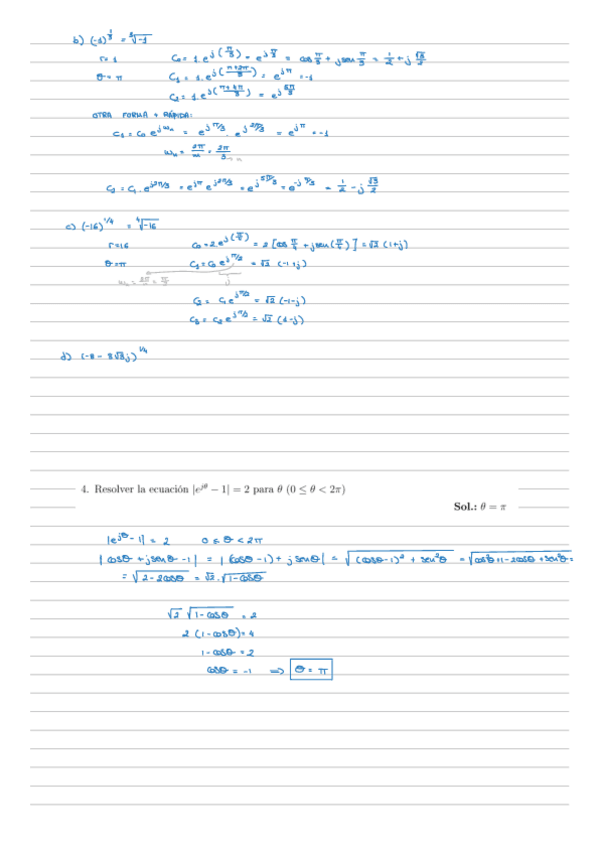 b) (-1)^{1/3} = ∛-1
r=1    C₀ = 1·e^{j(π/3)} = e^{jπ/3} = cos π/3 + j sen π/3 = 1/2 + j √3/2
θ=π    C₁ = 1·e^{j((π+2π)/3)} = e^{jπ} = -1
C₂ = 1·e^{j((π+4π)/3)} = e^{j5π/3}
OTRA FORMA + RÁPIDA:
C₁ = C₀ e^{jωₙ} = e^{jπ/3} · e^{j2π/3} = e^{jπ} = -1
ωₙ = 2π/n = 2π/3
C₂ = C₁·e^{j2π/3} = e^{jπ} e^{j2π/3} = e^{j5π/3} = e^{-jπ/3} = 1/2 - j √3/2
c) (-16)^{1/4} = ∜-16
r=16    C₀ = 2e^{j(π/4)} = 2 [cos π/4 + j sen(π/4)] = √2 (1+j)
θ=π    C₁ = C₀ e^{jπ/2} = √2 (-1+j)
ωₙ = 2π/4 = π/2    j
C₂ = C₁ e^{jπ/2} = √2 (-1-j)
C₃ = C₂ e^{jπ/2} = √2 (1-j)
d) (-8 - 8√3j)^{1/4}
4. Resolver la ecuación |e^{jθ} − 1| = 2 para θ (0 ≤ θ < 2π)
Sol.: θ = π
|e^{jθ} - 1| = 2    0 ≤ θ < 2π
|cosθ + jsenθ - 1| = |(cosθ-1) + jsenθ| = √((cosθ-1)² + sen²θ) = √(cos²θ+1-2cosθ+sen²θ) =
= √(2-2cosθ) = √2·√(1-cosθ)
√2 √(1-cosθ) = 2
2 (1-cosθ) = 4
1-cosθ = 2
cosθ = -1 ⟹ θ = π